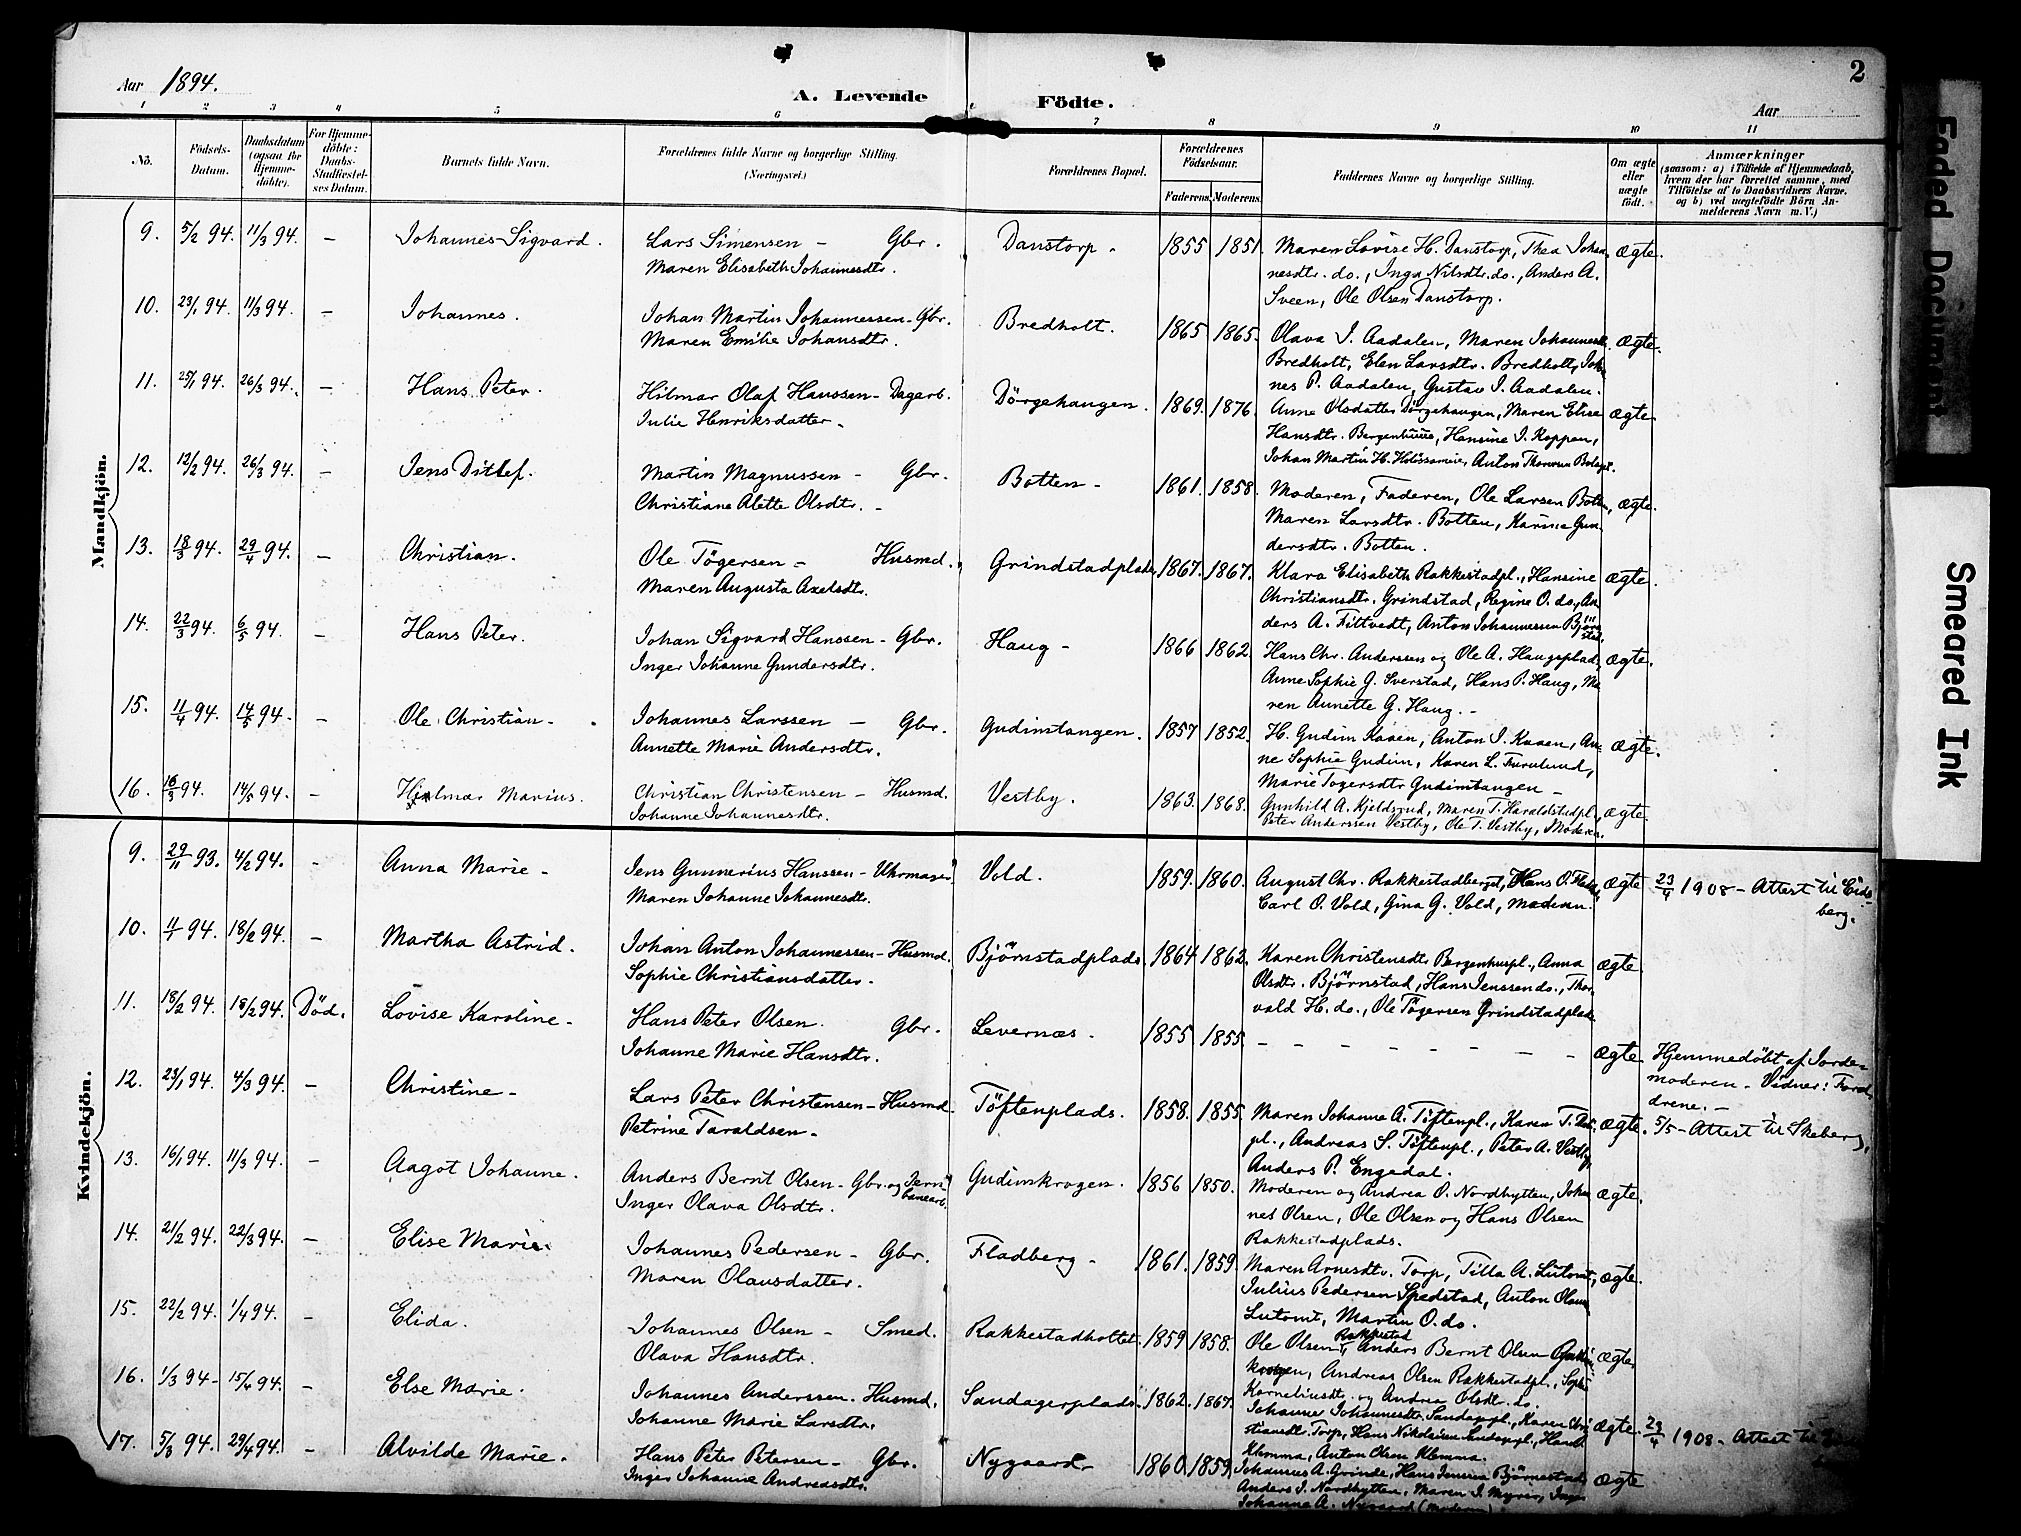 2
Aar 1894.
A. Levende Födte.
Aar
1 2 3 4 5 6 7 8 9 10 11
Nö.
Födsels-Datum.
Daabsdatum (ogsaa for Hjemme-döbte).
For Hjemme-döbte: Daabs-Stadfæstel-ses Datum.
Barnets fulde Navn.
Forældrenes fulde Navne og borgerlige Stilling. (Næringsvei.)
Forældrenes Bopæl.
Forældrenes Födselsaar.
Faderens. Moderens.
Faddernes Navne og borgerlige Stilling.
Om ægte eller uægte födt.
Anmærkninger
(saasom: a) i Tilfælde af Hjemmedaab,
hvem der har forrettet samme, med
Tilföielse af to Daabsvidners Navne.
og b) ved uægtefödte Börn An-
melderens Navn m. V.)
Mandkjön.
9. 5/2 94. 11/3 94. – Johannes Sigvard. Lars Simensen – Gbr. Danstorp – 1855 1851. Maren Lovise H. Danstorp, Thea Johan ægte.
Maren Elisabeth Johannesdtr. nesdtr. do., Inga Nilsdtr. do., Anders A.
Sveen, Ole Olsen Danstorp.
10. 23/1 94. 11/3 94. – Johannes. Johan Martin Johannessen – Gbr. Bredholt. 1865 1865. Olava J. Aadalen, Maren Johannesd. ægte.
Maren Emilie Johansdtr. Bredholt, Elen Larsdtr. Bredholt, Joh
nes P. Aadalen, Gustav J. Aadalen.
11. 25/1 94. 26/3 94. – Hans Peter. Hilmar Olaf Hanssen – Dagarb. Dörgehaugen. 1869. 1876. Anne Olsdatter Dörgehaugen, Maren Elise ægte.
Julie Henriksdatter – Hansdtr. Bergenhuus, Hansine J. Koppen,
Johan Martin H. Anton
12. 12/2 94. 26/3 94. – Jens Ditlef. Martin Magnussen – Gbr. Botten – 1861. 1858. Moderen, Faderen, Ole Larsen Botten, ægte.
Christiane Alette Olsdtr. – Maren Larsdtr. Botten, Karine Gun
dersdtr. Botten.
13. 18/3 94. 29/4 94. – Christian. Ole Tögersen – Husmd. Grindstadplads 1867. 1867. Klara Elisabeth Rakkestadpl., Hansine ægte.
Maren Augusta Axelsdtr. Christiansdtr. Grindstad, Regine O. do., An
ders A. Fittvedt, Anton Johannessen Björnstad.
14. 22/3 94. 6/5 94. – Hans Peter. Johan Sigvard Hanssen – Gbr. Haug – 1866 1862. Hans Chr. Anderssen og Ole A. Haugsplads, ægte.
Inger Johanne Gundersdtr. Anne Sophie G. Sverstad, Hans P. Haug, Ma
ren Annette G. Haug. –
15. 11/4 94. 14/5 94. – Ole Christian – Johannes Larssen – Gbr. Gudimtangen. 1857 1852. H. Gudim Kaaen, Anton J. Kaaen, An ægte.
Annette Marie Andersdtr. ne Sophie Gudim, Karen L. Furulund,
Marie Togersdtr Gudimtangen –
16. 16/3 94. 14/5 94. – Hjalmar Marius. Christian Christensen – Husmd. Vestby. 1863. 1868. Gunhild A. Kjeldsrud, Maren T. Haraldstadpl., ægte.
Johanne Johannesdtr. Peter Anderssen Vestby, Ole T. Vestby, Moderen.
Kvindekjön.
9. 29/11 93. 4/2 94. – Anna Marie – Jens Gunnerius Hanssen – Uhrmager, Vold. 1859. 1860. August Chr. Rakkestadberget, Hans O. ægte 23/4 1908 – Attest til Eids
Maren Johanne Johannesdtr. Carl O. Vold, Gina G. Vold, Moderen. berg.
10. 1/1 94. 18/2 94. – Martha Astrid. Johan Anton Johannessen – Husmd. Björnstadplads. 1864 1862. Karen Christensdtr Bergenhuspl., Anna ægte
Sophie Christiansdatter. Olsdtr. Björnstad, Hans Jenssen do., Thor
vald H. do., Ole Tögersen Grindstadplads
11. 18/2 94. 18/2 94. Död. Lovise Karoline – Hans Peter Olsen. Gbr. Levernæs. 1855 1855. – – – – – – – – ægte Hjemmedöbt af Jorde-
Johanne Marie Hansdtr. moderen – Vidner: Foræl
drene. –
12. 23/1 94. 4/3 94. – Christine – Lars Peter Christensen – Husmd. Töftenplads. 1858. 1855. Maren Johanne A. Töftenpl., Karen T. ægte. 5/5 – Attest til Skeberg,
Petrine Taraldsen – pl., Andreas S. Töftenpl., Peter A. Vestby,
Anders P. Engedal.
13. 16/1 94. 11/3 94. – Aagot Johanne. Anders Bernt Olsen – Gbr. og Jernbanearb. Gudimkrogen. 1856 1850. Moderen og Andrea O. Nordhytten, Johan ægte.
Inger Olava Olsdtr. nes Olsen, Ole Olsen og Hans Olsen
Rakkestadplads.
14. 21/2 94. 22/3 94. – Elise Marie. Johannes Pedersen – Gbr. Fladberg – 1861. 1859. Maren Arnesdtr. Torp, Tilla A. Lutomt, ægte.
Maren Olausdatter. Julius Pedersen Spedstad, Anton Olaus
Lutomt, Martin O. do.
15. 22/2 94. 1/4 94. – Elida. Johannes Olsen – Smed. Rakkestadholtet. 1859 1858. Ole Olsen Rakkestad, Anders Bernt Olsen Gudim ægte.
Olava Hansdtr. krogen, Andreas Olsen Rakkestadpl., Sophie
Korneliusdtr. og Andrea Olsdtr. do.
16. 1/3 94 – 15/4 94. – Else Marie. Johannes Anderssen. Husmd. Sandagerplads. 1862. 1867. Johanne Johannesdtr. Sandagerpl., Karen Chri ægte. 23/4 1908 – Attest til
Johanne Marie Larsdtr. stiansdtr. Torp, Hans Nikolaisen Sandagerpl., Hans
Klemma, Anton Olsen Klemma.
17. 5/3 94. 29/4 94. – Alvilde Marie. Hans Peter Petersen – Gbr. Nygaard – 1860. 1859. Johannes A. Grinde, Hans Jensen Björnestad, ægte
Inger Johanne Andreasdtr. Anders J. Nordhytten, Maren J. Myrer, Inger
Johanne A. Nygaard (Moderen)
Faded Document
Smeared Ink